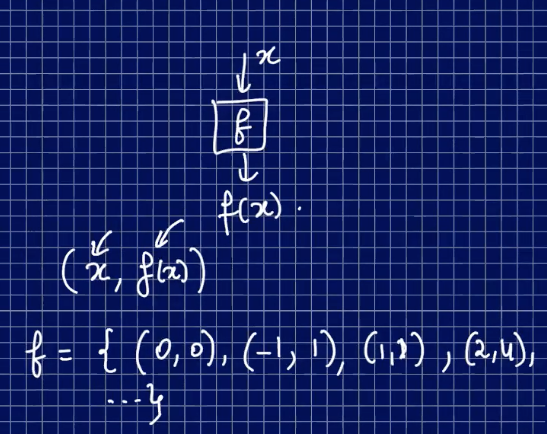 x
f
f(x).
(x, f(x))
f = { (0,0), (-1, 1), (1,1), (2,4),
...}